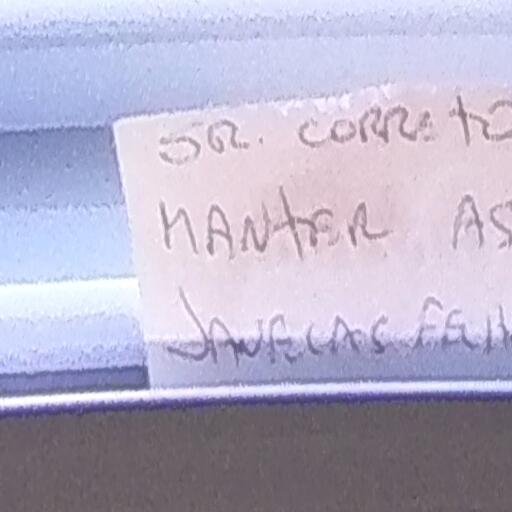 SR. CORRETO
MANTER AS
JANELAS FEH